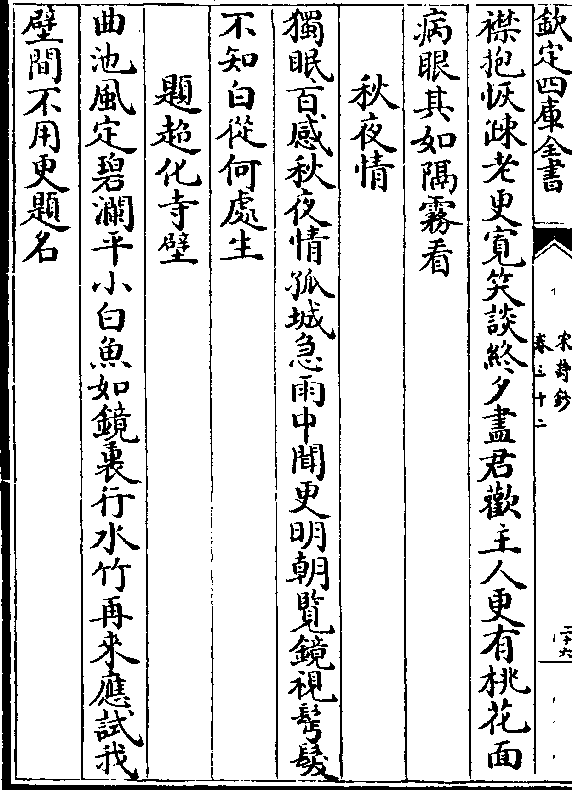 欽定四庫全書
宋詩鈔
卷三十二
二十六
襟抱恢疎老更寛笑談終夕盡君歡主人更有桃花面
病眼其如隔霧看
秋夜情
獨眠百感秋夜情孤城急雨中聞更明朝覧鏡視髩髮
不知白從何處生
題超化寺壁
曲池風定碧瀾平小白魚如鏡裏行水竹再來應試我
壁間不用更題名